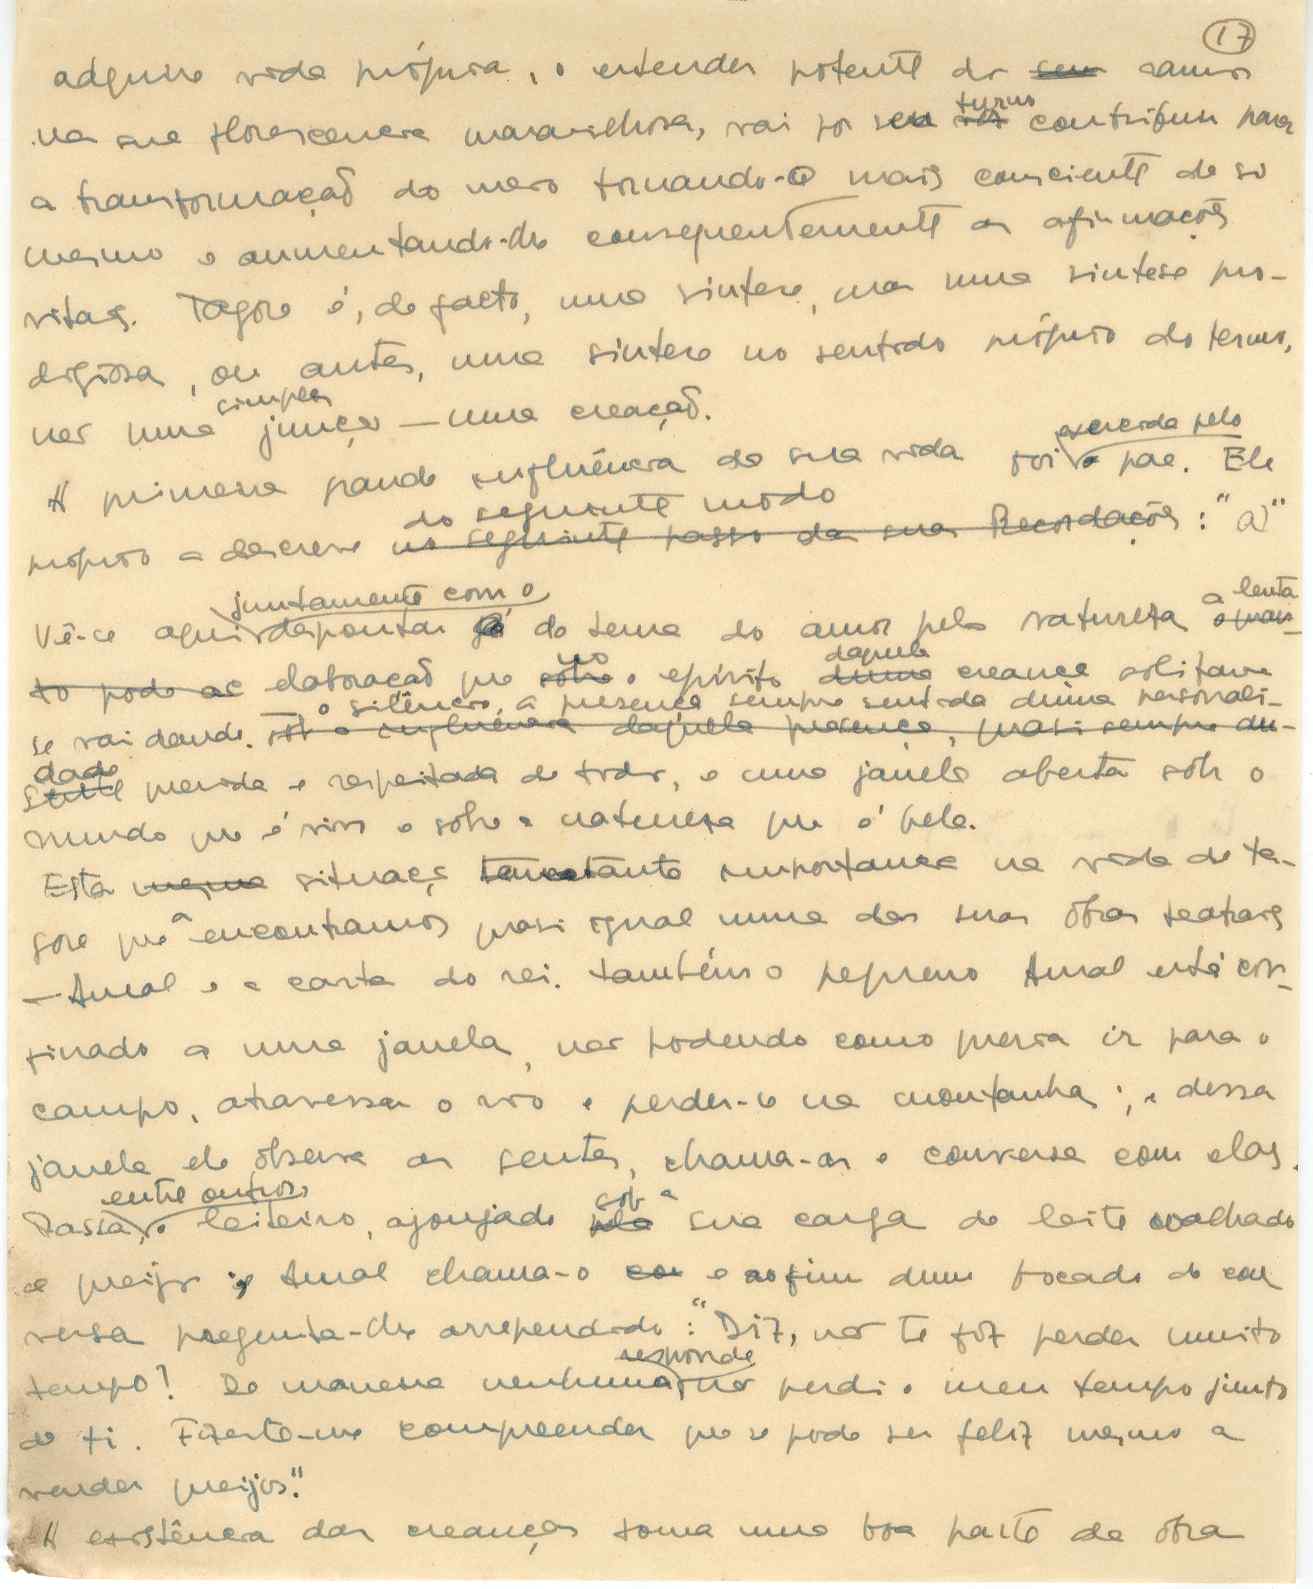 17
adquire vida própria, o entender potente do seu ramos
na sua florescencia maravilhosa, vai por seu turno contribuir para
a transformação do meio tornando-o mais consciente de si
mesmo e aumentando-lhe consequentemente as afirmações
vitais. Tagore é, de facto, uma sintese, mas uma sintese pro-
digiosa, ou antes, uma sintese no sentido próprio do termo,
simples
não uma junção — uma creação.
exercida pelo
A primeira grande influência da sua vida foi o pae. Ele
do seguinte modo
próprio a descreve no seguinte passo das suas Recordações: "a)"
juntamente com o
a lenta
Vê-se aqui despontar já do tema do amor pela natureza o quan-
no
daquela
to pode ac elaboração que sobre o espírito duma creança solitaria
o silêncio, a presença sempre sentida duma personali-
se vai dando. sob a influência daquela presença, quasi sempre au-
dade
sente querida e respeitada de todos, e uma janela aberta sôbre o
mundo que é vivo e sobre a natureza que é bela.
Esta mesma situação tem tanta importancia na vida de Ta-
gore que a encontramos quasi igual numa das suas obras teatrais
— Amal e a carta do rei. Também o pequeno Amal está con-
finado a uma janela, não podendo como queria ir para o
campo, atravessar o rio e perder-se na montanha; e dessa
janela ele observa as gentes, chama-as e conversa com elas.
entre outros
sob a
Passa o leiteiro, ajoujado pela sua carga de leite coalhado
e queijo; Amal chama-o com e ao fim dum bocado de con
versa pregunta-lhe arrependido: "Diz, não te fiz perder muito
responde
tempo? De maneira nenhuma, não perdi o meu tempo junto
de ti. Fizeste-me compreender que se pode ser feliz mesmo a
vender queijos."
A existência das creanças toma uma boa parte da obra